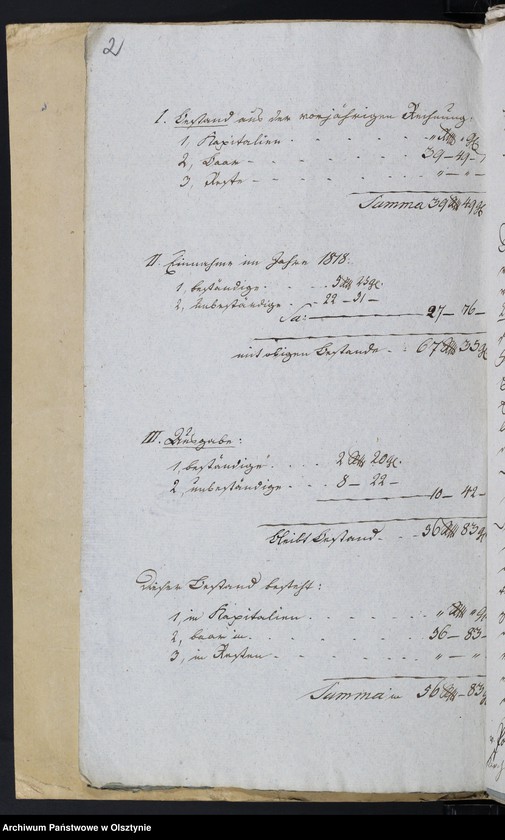 2
I. Bestand aus der vorjährigen Rechnung:
1, Kapitalien . . . . . . „ Rth „ gl
2, Baar . . . . . . 39 – 49 –
3, Reste – – . . . . . „ – „ –
Summa 39 Rth 49 gl
II. Einnahme im Jahre 1818.
1, beständige . . . . 5 Rth 25 gl.
2, unbeständige . – 22 – 51 –
Sa: 27 – 76 –
mit obigen Bestande . . 67 Rth 35 gl
III. Ausgabe:
1, beständige . . . . 2 Rth 20 gl.
2, unbeständige . . . 8 – 22 –
10 – 42 –
bleibt Bestand . . . 56 Rth 83 gl
Dieser Bestand besteht:
1, in Kapitalien . . . . . . „ Rth „ gl
2, baar in . . . . . . . 56 – 83 –
3, in Resten . . . . . . . „ – „
Summa in 56 Rth – 83 gl
Archiwum Państwowe w Olsztynie